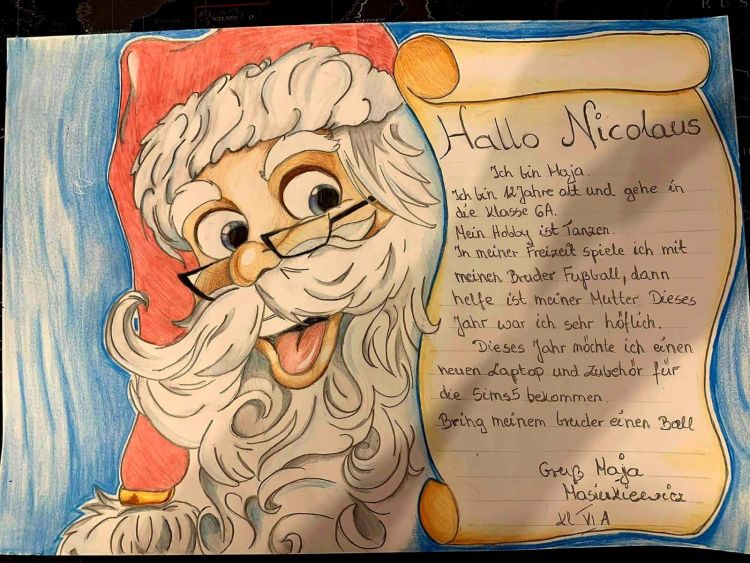 Hallo Nicolaus
Ich bin Maja
Ich bin 12 Jahre alt und gehe in
die Klasse 6A.
Mein Hobby ist Tanzen.
In meiner Freizeit spiele ich mit
meinen Bruder Fußball, dann
helfe ist meiner Mutter Dieses
Jahr war ich sehr höflich.
Dieses Jahr möchte ich einen
neuen Laptop und Zubehör für
die Sims5 bekommen.
Bring meinem bruder einen Ball
Gruß Maja
Kl VI A